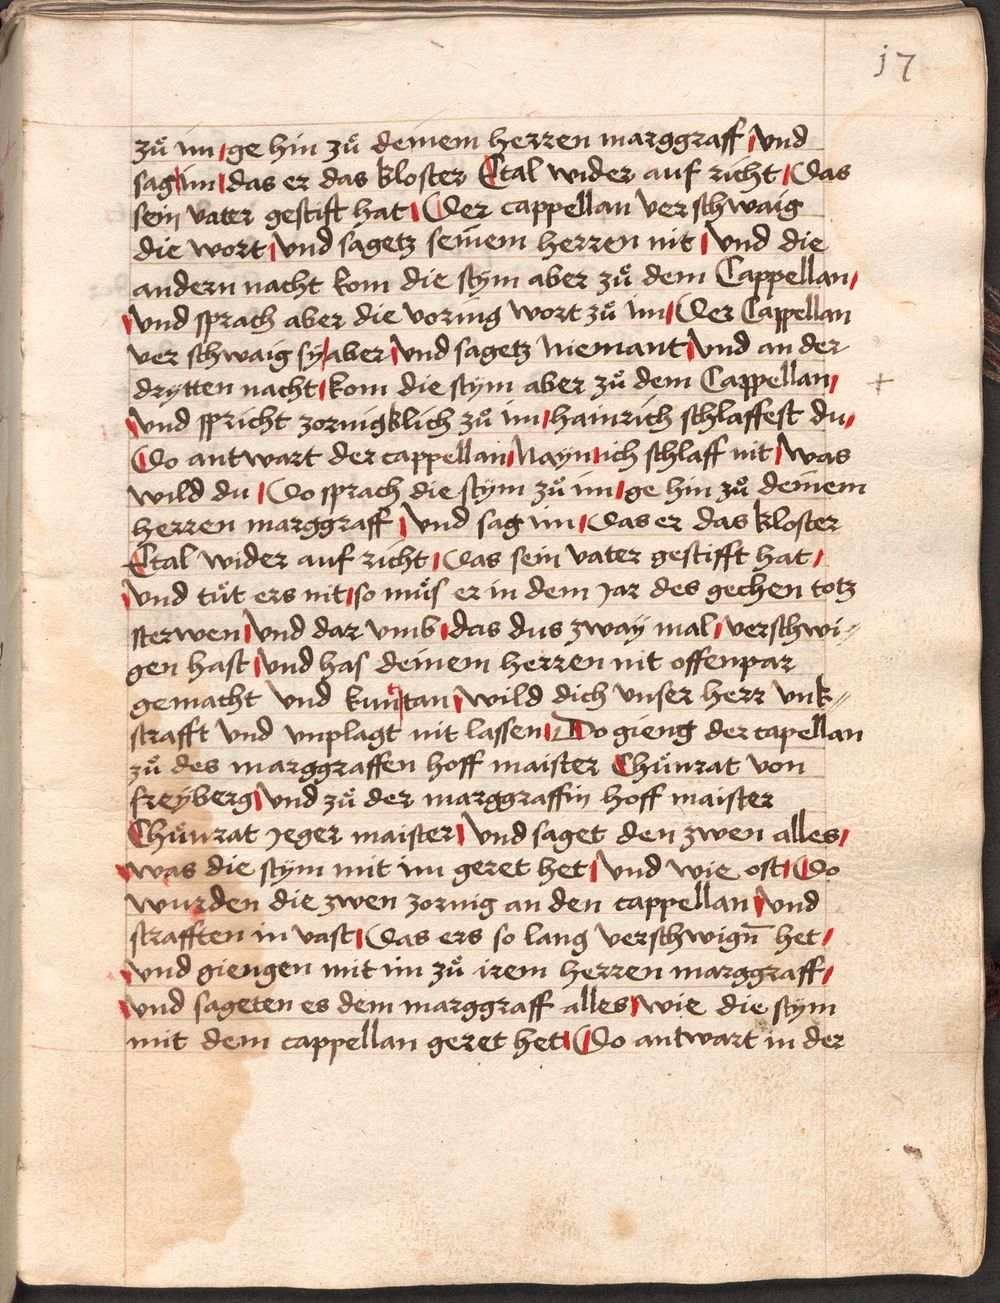 17
zuͦ im / ge hin zuͦ deinem herren marggraff / Vnd
sag im / das er das kloster Etal wider auf richt / Das
sein vater gestift hat / Der cappellan verschwaig
die wort / Vnd sagetz seinem herren nit / Vnd die
andern nacht kom die stym aber zuͦ dem Cappellan /
Vnd sprach aber die vorinig wort zuͦ im / Der Cappellan
ver schwaig sy / aber / Vnd sagetz niemant / Vnd an der
drytten nacht / kom die stym aber zuͦ dem Cappellan /
Vnd spricht zornigklich zuͦ im / hainrich schlaffest du /
Do antwart der cappellan / Nayn / ich schlaff nit / Was
wild du / Do sprach die stym zuͦ im / ge hin zuͦ deinem
herren marggraff / Vnd sag im / Das er das kloster
Etal wider auf richt / Das sein vater gestifft hat /
Vnd tuͤt ers nit / so muͦs er in dem Jar des gechen totz
sterwen / Vnd dar vmb / das dus zway mal / verschwi//
gen hast / Vnd has deinem herren nit offenpar
gemacht vnd kun tan / Wild dich vnser herr vnk//
strafft vnd vnplagt nit lassen / Do gieng der capellan
zuͦ des marggraffen hoff maister Chuͦnrat von
freyberg / Vnd zuͦ der marggraffin hoff maister
Chuͦnrat Jeger maister / Vnd saget den zwen alles /
was die stym mit im geret het / Vnd wie ost / Do
wurden die zwen zornig an den cappellan / Vnd
strafften in vast / Das ers so lang verschwign̄ het /
Vnd giengen mit im zuͦ irem herren marggraff /
Vnd sageten es dem marggraff alles / wie die stym
mit dem cappellan geret het / Do antwart in der